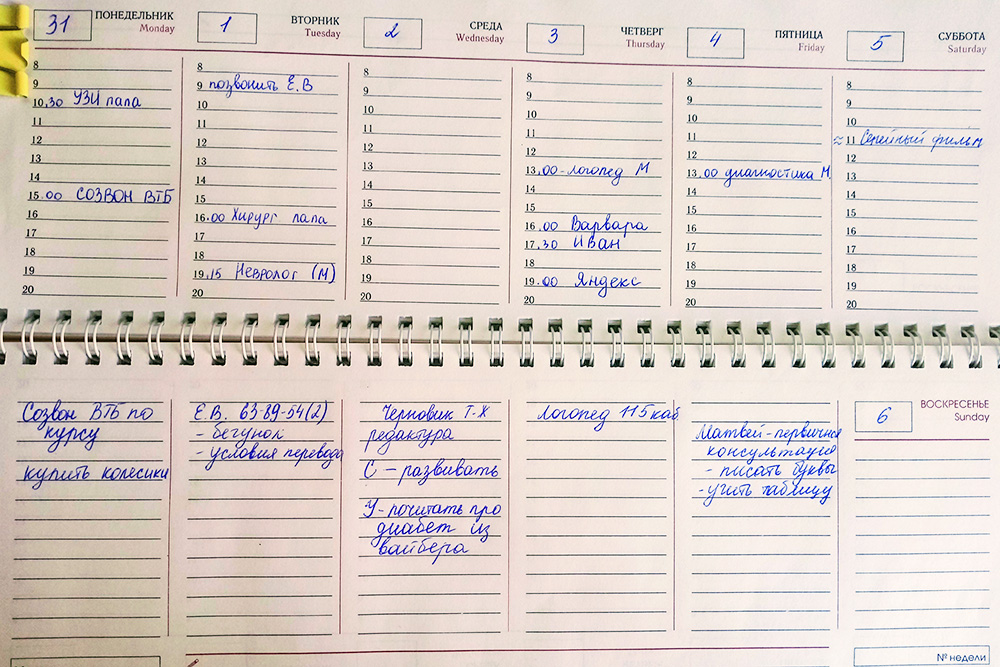 31 ПОНЕДЕЛЬНИК
Monday
8
9
10.30 УЗИ папа
11
12
13
14
15.00 СОЗВОН ВТБ
16
17
18
19
20
1 ВТОРНИК
Tuesday
8
9 позвонить Е.В
10
11
12
13
14
15
16.00 Хирург папа
17
18
19.15 Невролог (М)
20
2 СРЕДА
Wednesday
8
9
10
11
12
13
14
15
16
17
18
19
20
3 ЧЕТВЕРГ
Thursday
8
9
10
11
12
13.00-логопед М
14
15
16.00 Варвара
17.30 Иван
18
19.00 Яндекс
20
4 ПЯТНИЦА
Friday
8
9
10
11
12
13.00 диагностика М
14
15
16
17
18
19
20
5 СУББОТА
Saturday
8
9
10
≈11 Семейный фильм
12
13
14
15
16
17
18
19
20
Созвон ВТБ по
курсу
купить колесики
Е.В. 63-89-54(2)
- бегунок
- условия перевода
Черновик Т-Ж
редактура
С - развивать
У - почитать про
диабет из
вайбера
Логопед 115 каб
Матвей - первичная
консультация
- писать буквы
- учить таблицу
6 ВОСКРЕСЕНЬЕ
Sunday
№ недели